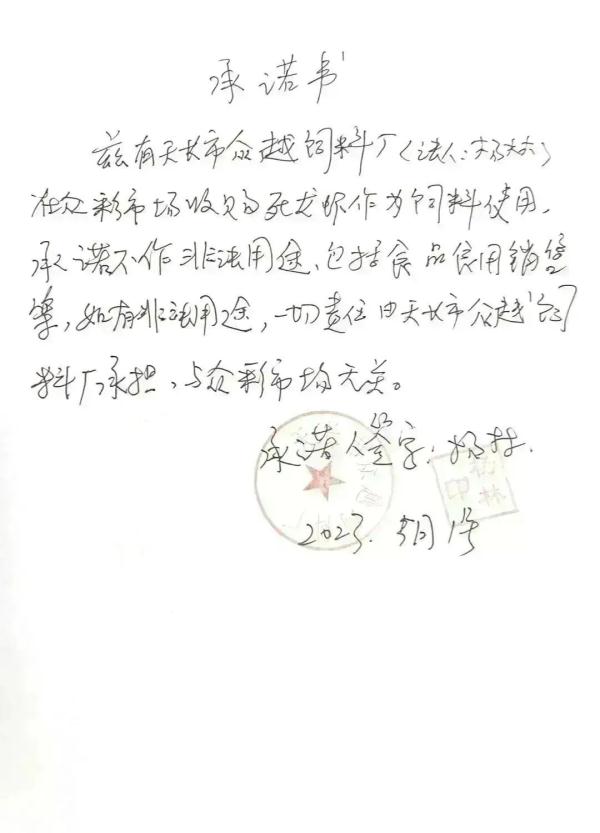 承诺书
兹有天长市众越饲料厂（法人：杨林）
在众彩市场收购死龙虾作为饲料使用,
承诺不作非法用途、包括食品食用销售
等,如有非法用途,一切责任由天长市众越饲
料厂承担、与众彩市场无关。
承诺人签字:杨林.
2023.5月1号